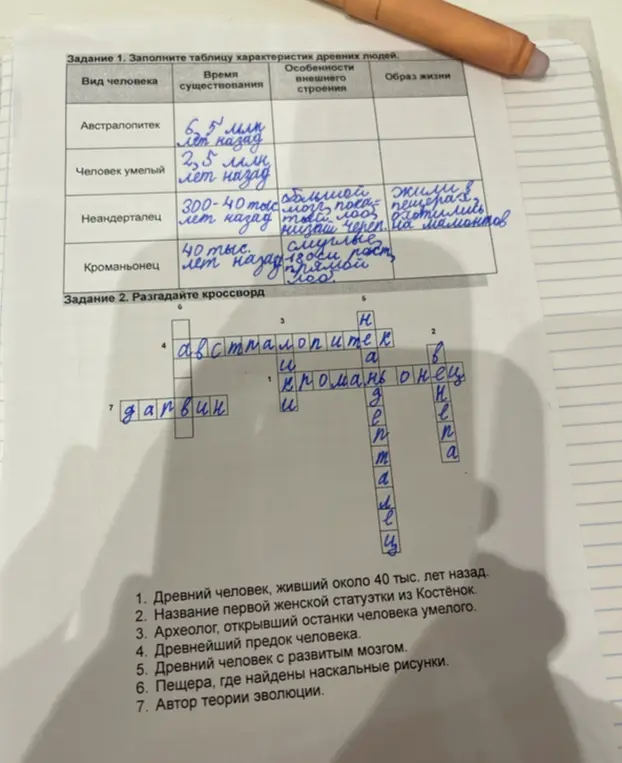 Задание 1. Заполните таблицу характеристик древних людей.
Вид человека
Время существования
Особенности внешнего строения
Образ жизни
Австралопитек
6,5 млн
лет назад
Человек умелый
2,5 млн
лет назад
Неандерталец
300-40 тыс
лет назад
большой
мозг, пока-
тый лоб,
низкий череп.
жили в
пещерах,
охотились
на мамонтов
Кроманьонец
40 тыс.
лет назад
смуглые,
180см рост,
прямой
лоб.
Задание 2. Разгадайте кроссворд
6
5
3
2
4 австралопитек
1 кроманьонец
7 дарвин
неандерталец
лики
венера
1. Древний человек, живший около 40 тыс. лет назад.
2. Название первой женской статуэтки из Костёнок.
3. Археолог, открывший останки человека умелого.
4. Древнейший предок человека.
5. Древний человек с развитым мозгом.
6. Пещера, где найдены наскальные рисунки.
7. Автор теории эволюции.